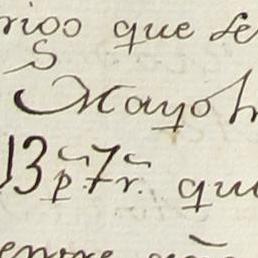 rigo que se
Mayo h
13 p.s 7 r.s que